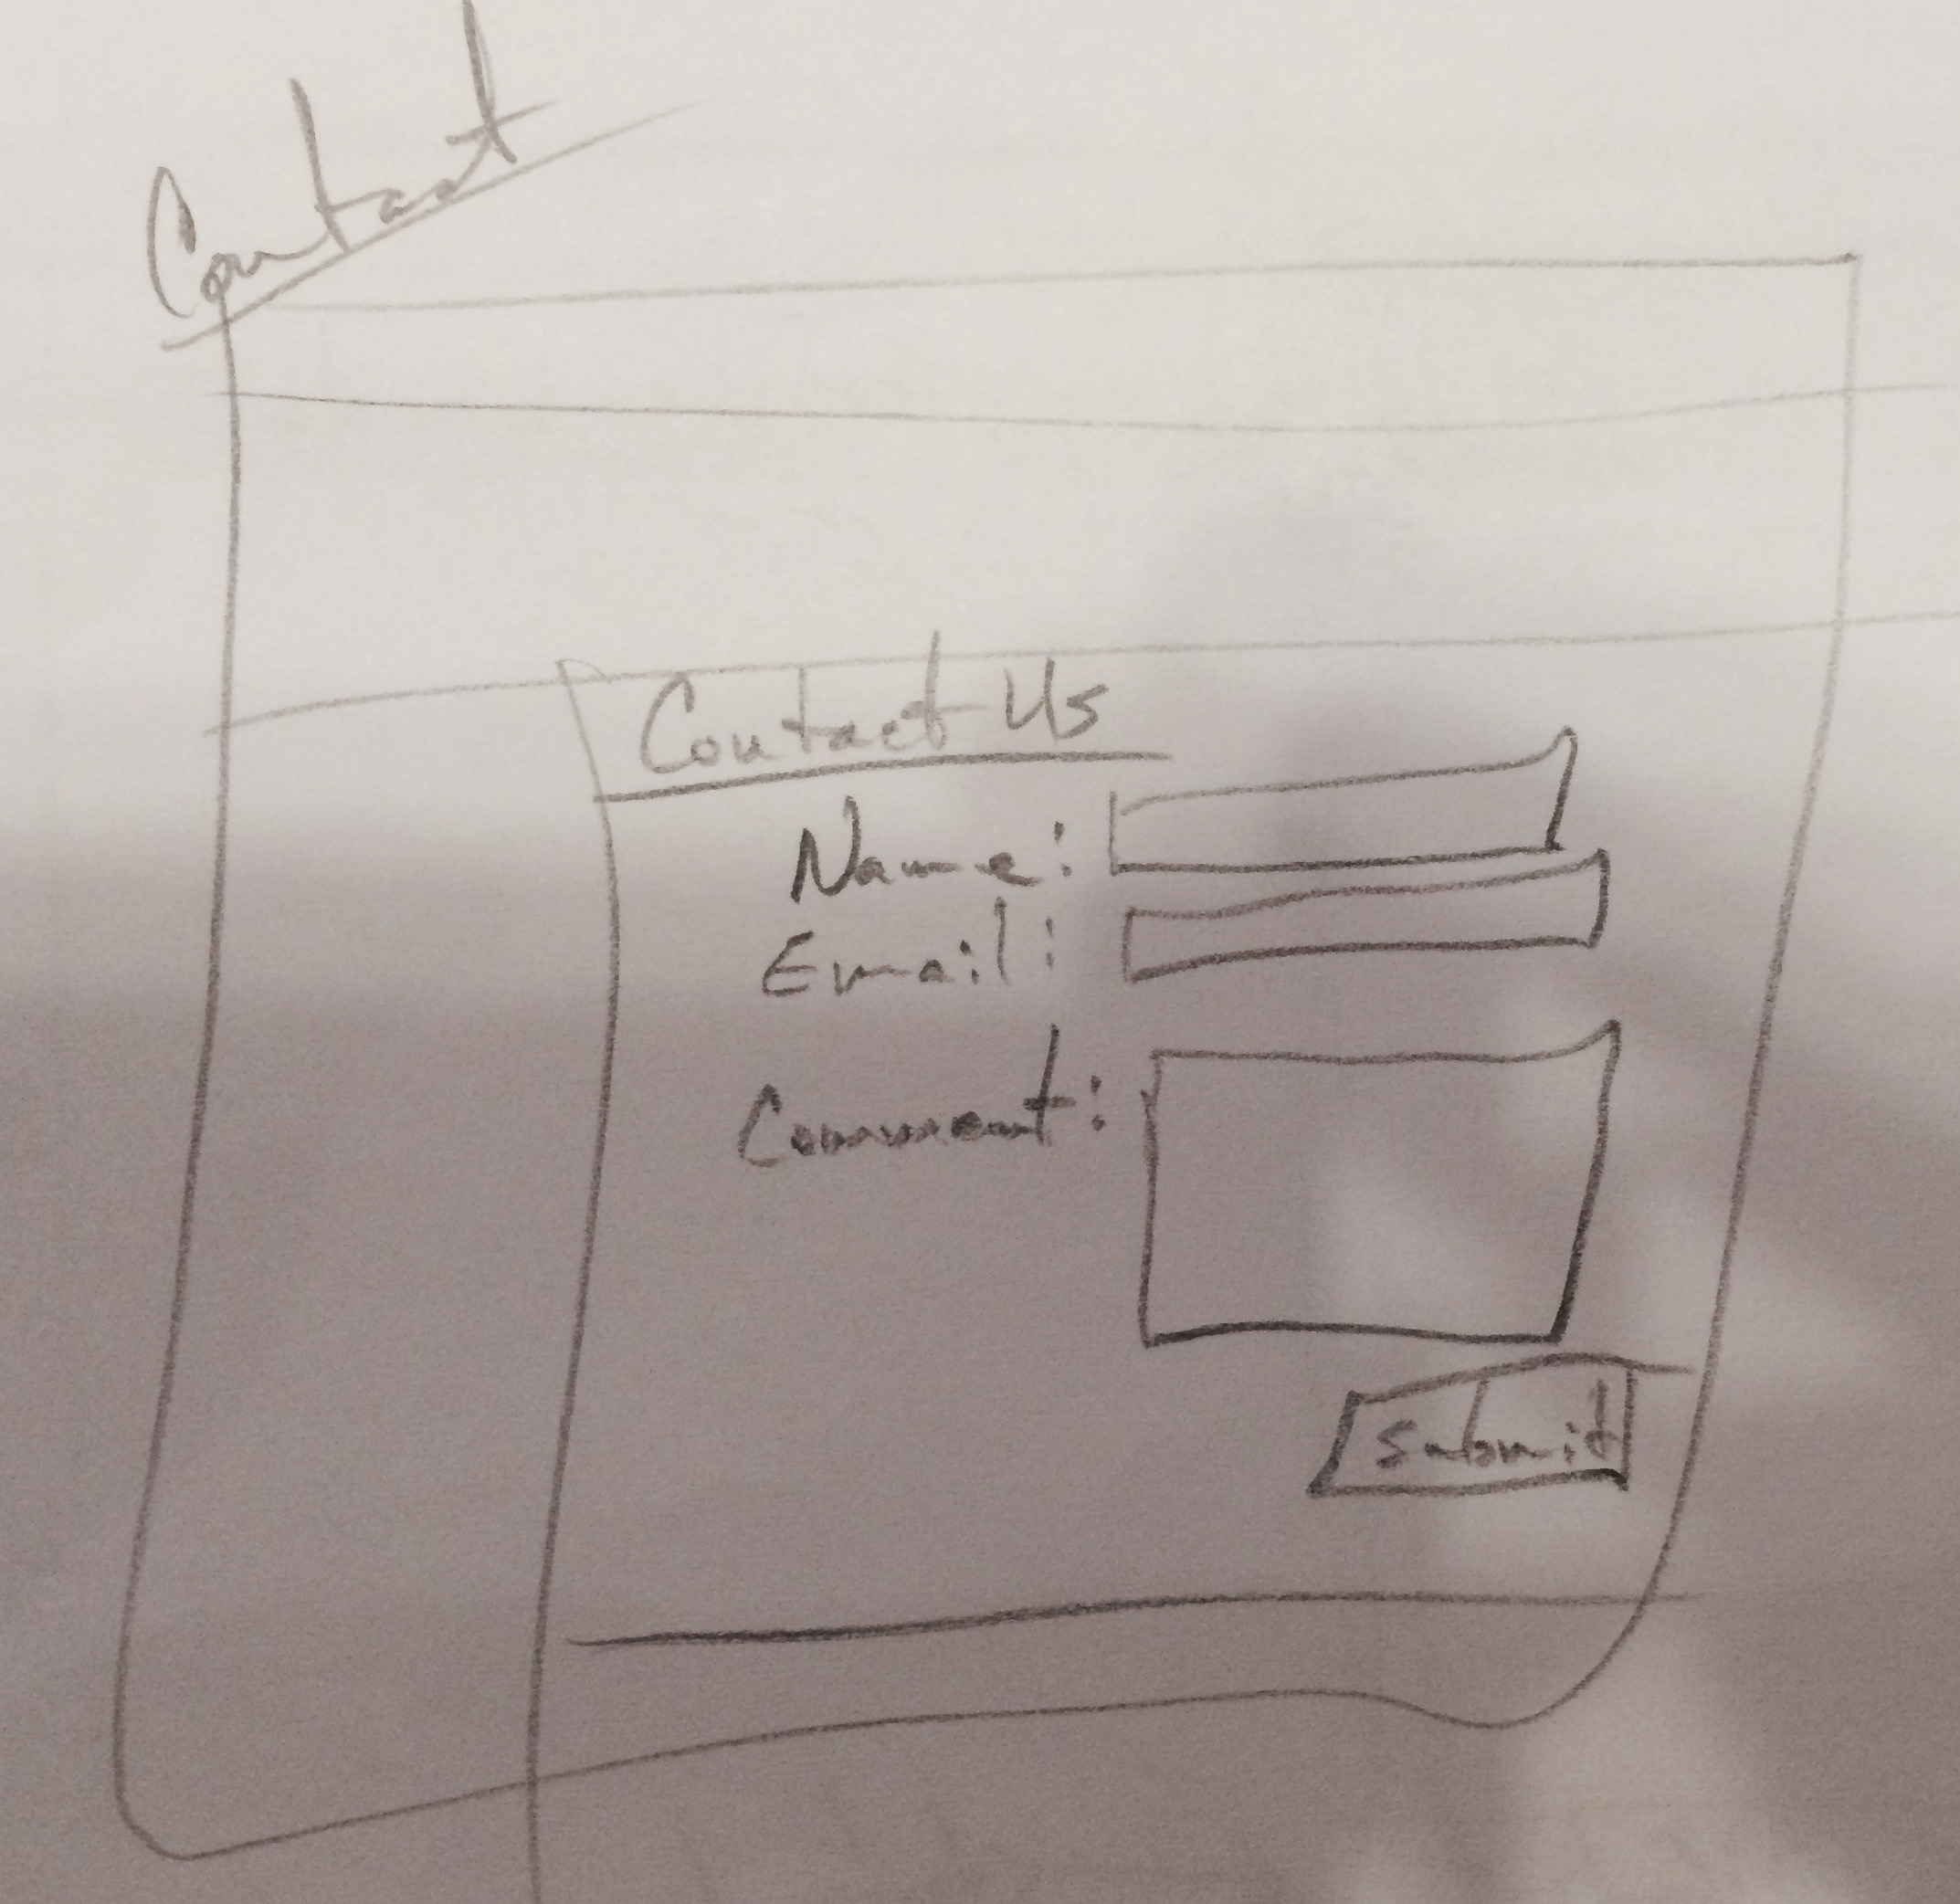 Contact
Contact Us
Name:
Email:
Comment:
Submit